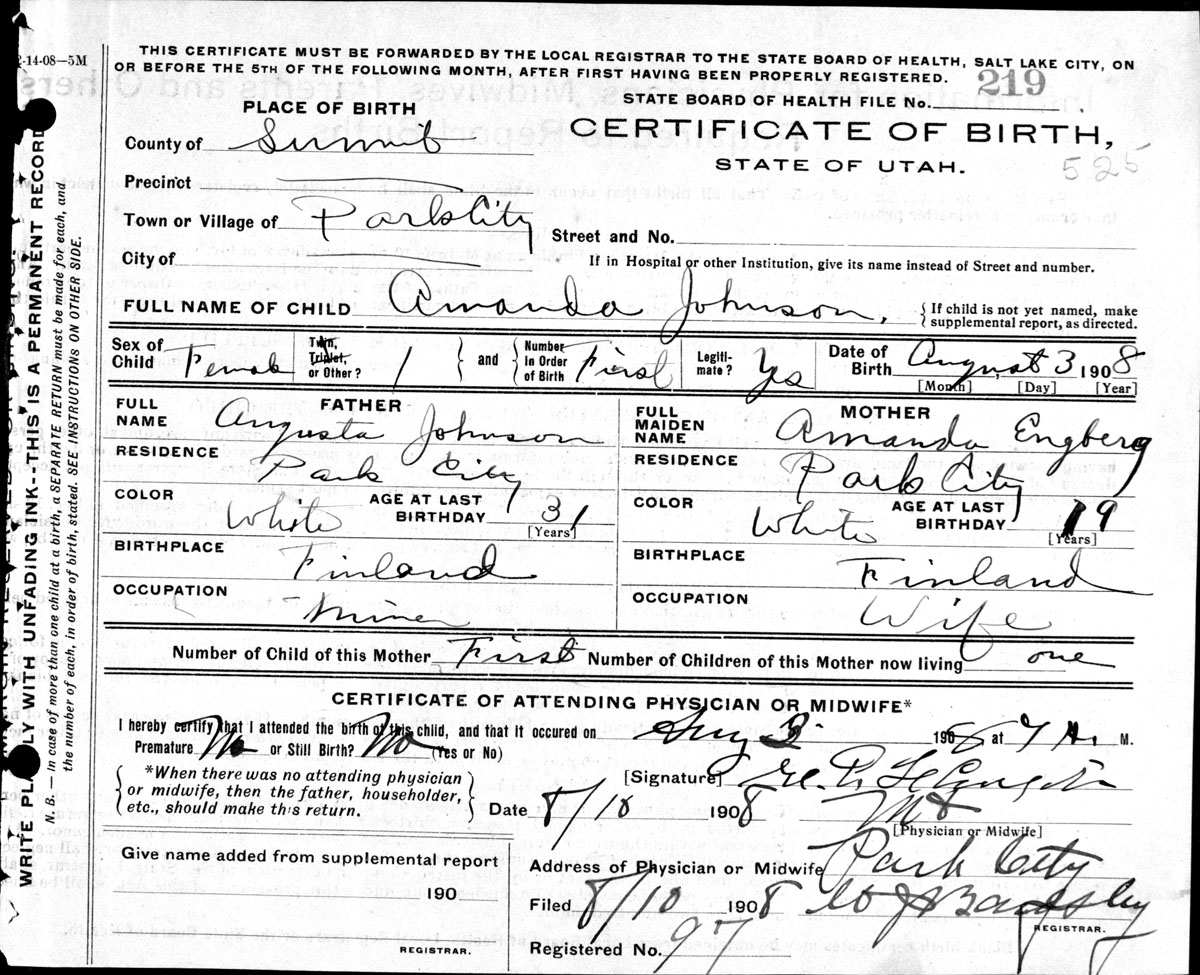 2-14-08—5M
THIS CERTIFICATE MUST BE FORWARDED BY THE LOCAL REGISTRAR TO THE STATE BOARD OF HEALTH, SALT LAKE CITY, ON
OR BEFORE THE 5TH OF THE FOLLOWING MONTH, AFTER FIRST HAVING BEEN PROPERLY REGISTERED.
219
STATE BOARD OF HEALTH FILE No.
PLACE OF BIRTH
CERTIFICATE OF BIRTH,
STATE OF UTAH.
525
County of Summit
Precinct
Town or Village of Park City
Street and No.
City of
If in Hospital or other Institution, give its name instead of Street and number.
FULL NAME OF CHILD Amanda Johnson, { If child is not yet named, make
supplemental report, as directed.
Sex of Child Female
Twin, Triplet, or Other? 1 } and { Number in Order of Birth First
Legiti-mate? Yes
Date of Birth August 3 1908
[Month] [Day] [Year]
FATHER
FULL NAME Augusta Johnson
RESIDENCE Park City
COLOR White AGE AT LAST BIRTHDAY 31 [Years]
BIRTHPLACE Finland
OCCUPATION Miner
MOTHER
FULL MAIDEN NAME Amanda Engberg
RESIDENCE Park City
COLOR White AGE AT LAST BIRTHDAY 19 [Years]
BIRTHPLACE Finland
OCCUPATION Wife
Number of Child of this Mother First Number of Children of this Mother now living one
CERTIFICATE OF ATTENDING PHYSICIAN OR MIDWIFE*
I hereby certify that I attended the birth of this child, and that it occured on Aug 3 1908 at 7 A. M.
Premature No or Still Birth? No (Yes or No)
{ *When there was no attending physician
or midwife, then the father, householder,
etc., should make this return. }
[Signature]
Date 8/10 1908 MD
[Physician or Midwife]
Give name added from supplemental report
190
REGISTRAR.
Address of Physician or Midwife Park City
Filed 8/10 1908
REGISTRAR.
Registered No. 97
WRITE PLAINLY WITH UNFADING INK--THIS IS A PERMANENT RECORD
N. B. — In case of more than one child at a birth, a SEPARATE RETURN must be made for each, and
the number of each, in order of birth, stated. SEE INSTRUCTIONS ON OTHER SIDE.